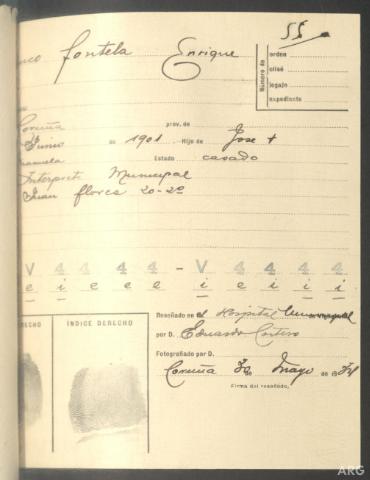 55
nco Fontela Enrique
Número de
orden
clisé
legajo
expediente
Coruña prov. de
Junio de 1901 Hijo de Jose +
anuela Estado casado
Interprete Municipal
Juan Flores 20-2º
V 4 4 4 4 - V 4 4 4 4
e i e e e i e i i i
RECHO
INDICE DERECHO
Reseñado en el Hospital Municipal
por D. Eduardo
Fotografiado por D.
Coruña 30 de Mayo de 19
Firma del reseñado,
ARG